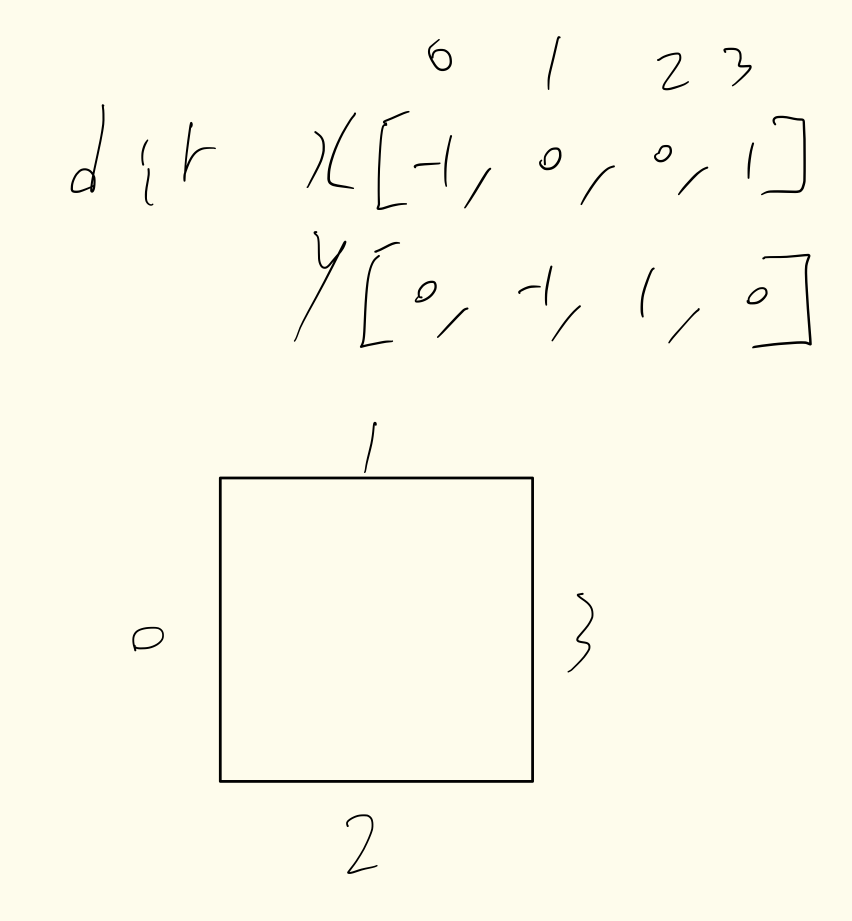 0 1 2 3
dir x[-1, 0, 0, 1]
y[0, -1, 1, 0]
1
0 3
2